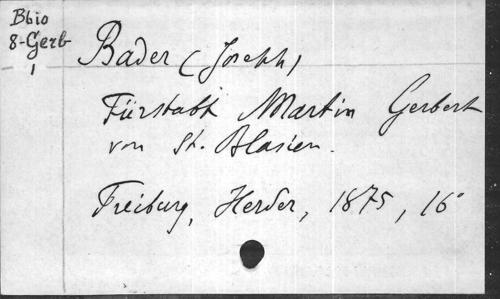 Bbio
8-Gerb
1
Bader (Joseph)
Fürstabt Martin Gerbert
von St. Blasien.
Freiburg, Herder, 1875, 16°